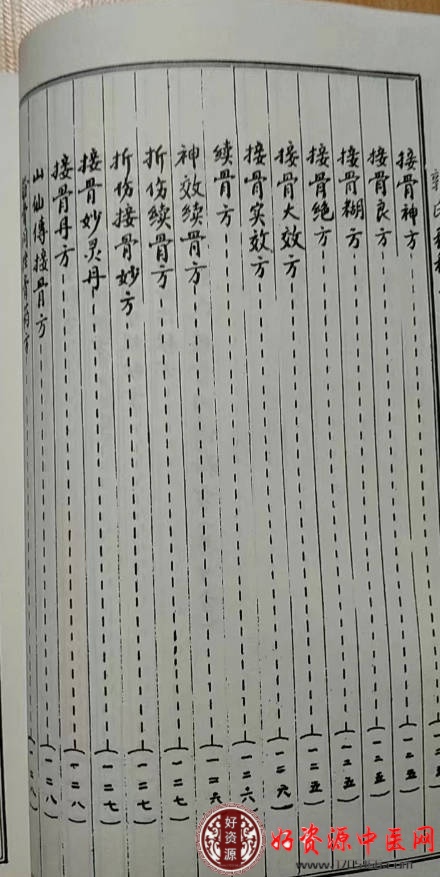 接骨神方（一二五）
接骨良方（一二五）
接骨糊方（一二五）
接骨绝方（一二五）
接骨大效方（一二六）
接骨实效方（一二六）
续骨方（一二六）
神效续骨方（一二七）
折伤续骨方（一二七）
折伤接骨妙方（一二七）
接骨妙灵丹（一二七）
接骨丹方（一二八）
山仙传接骨方（一二八）
（一二八）
好资源
好资源中医网